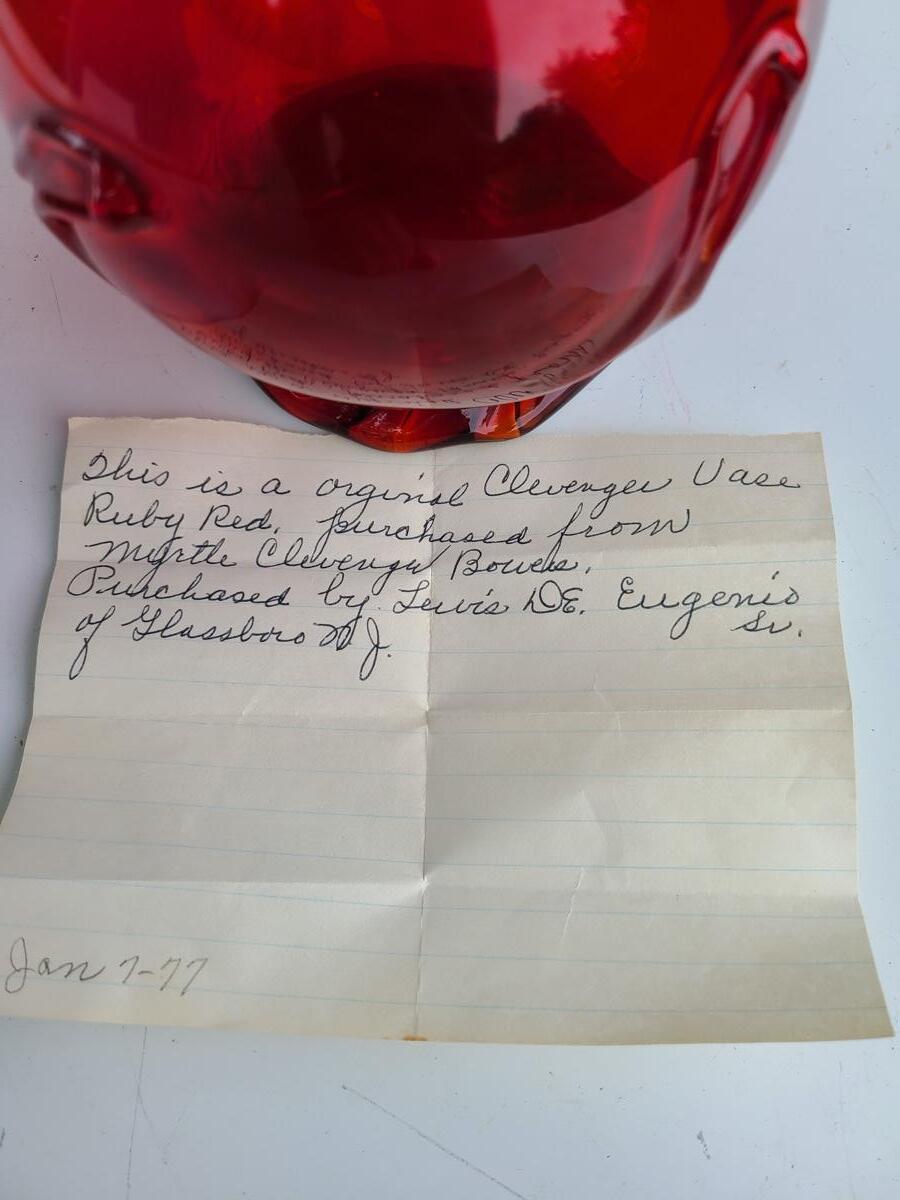 This is a orginal Clevenger Vase
Ruby Red. purchased from
Myrtle Clevenger Bowers.
Purchased by Lewis DE. Eugenio
Sr.
of Glassboro N J.
Jan 7-77